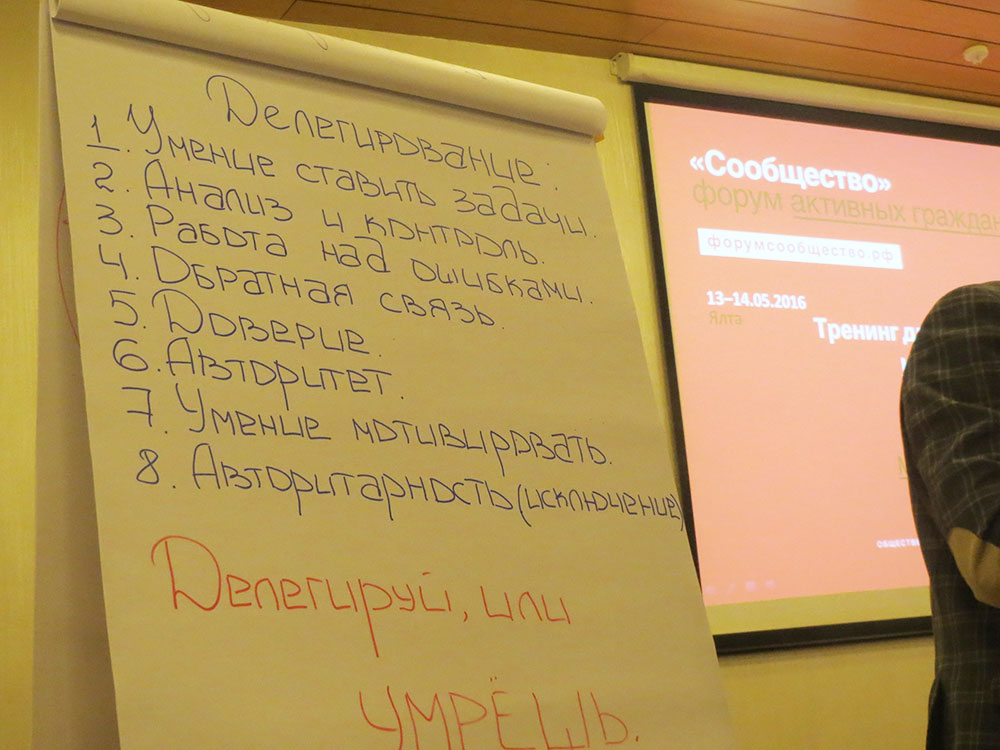 Делегирование:
1. Умение ставить задачи.
2. Анализ и контроль.
3. Работа над ошибками.
4. Обратная связь.
5. Доверие.
6. Авторитет.
7. Умение мотивировать.
8. Авторитарность (исключение)
Делегируй, или
УМРЁШЬ.
«Сообщество»
форум активных
форумсообщество.рф
13–14.05.2016
Ялта
Тренинг